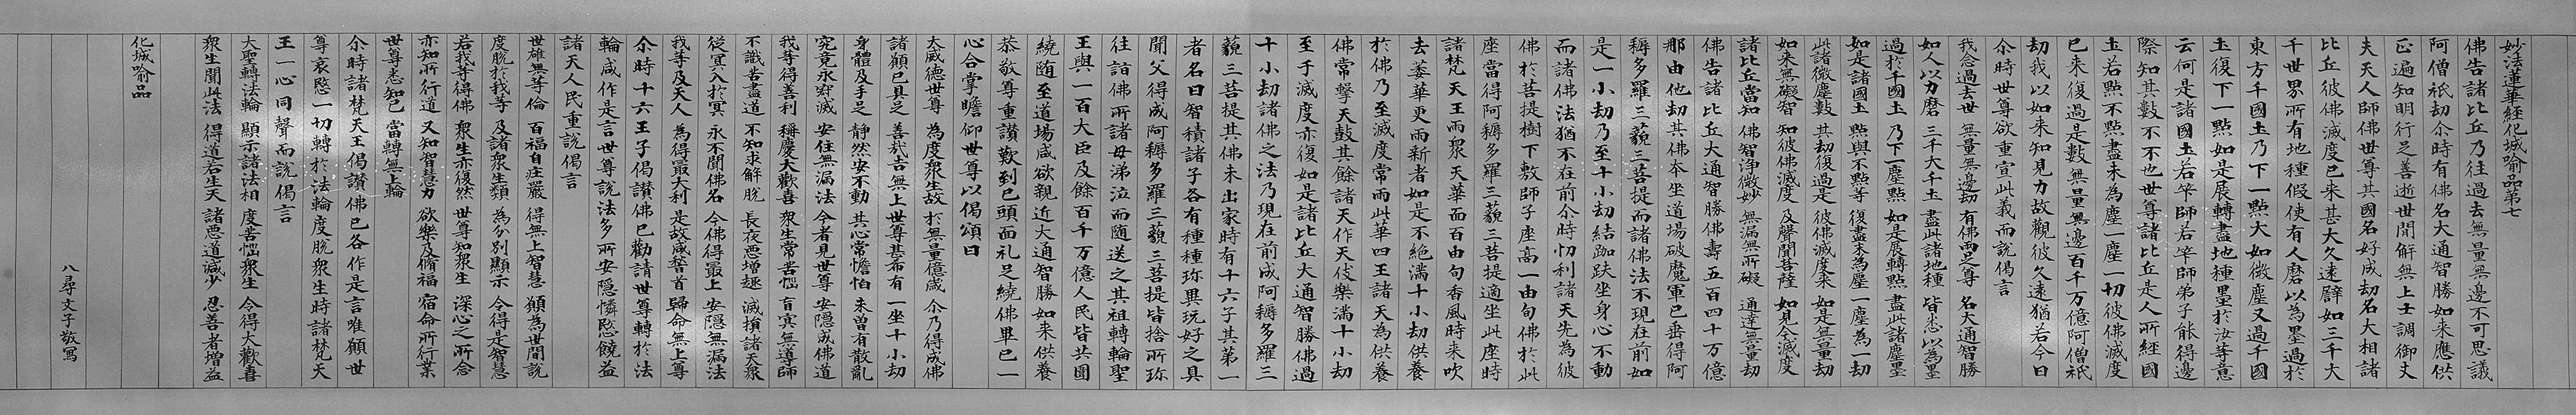 妙法蓮華経化城喩品第七
佛告諸比丘乃往過去無量無邊不可思議
阿僧祇劫尒時有佛名大通智勝如来應供
正遍知明行足善逝世間解無上士調御丈
夫天人師佛世尊其國名好成劫名大相諸
比丘彼佛滅度已来甚大久遠譬如三千大
千世界所有地種假使有人磨以為墨過於
東方千國土乃下一點大如微塵又過千國
土復下一點如是展轉盡地種墨於汝等意
云何是諸國土若竿師若竿師弟子能得邊
際知其數不不也世尊諸比丘是人所經國
土若點不點盡末為塵一塵一劫彼佛滅度
已来復過是數無量無邊百千万億阿僧祇
劫我以如来知見力故觀彼久遠猶若今日
尒時世尊欲重宣此義而説偈言
我念過去世 無量無邊劫 有佛兩足尊 名大通智勝
如人以力磨 三千大千土 盡此諸地種 皆悉以為墨
過於千國土 乃下一塵點 如是展轉點 盡此諸塵墨
如是諸國土 點與不點等 復盡末為塵 一塵為一劫
此諸微塵數 其劫復過是 彼佛滅度来 如是無量劫
如来無礙智 知彼佛滅度 及聲聞菩薩 如見今滅度
諸比丘當知 佛智淨微妙 無漏無所礙 通達無量劫
佛告諸比丘大通智勝佛壽五百四十万億
那由他劫其佛本坐道場破魔軍已垂得阿
耨多羅三藐三菩提而諸佛法不現在前如
是一小劫乃至十小劫結跏趺坐身心不動
而諸佛法猶不在前尒時忉利諸天先為彼
佛於菩提樹下敷師子座高一由旬佛於此
座當得阿耨多羅三藐三菩提適坐此座時
諸梵天王雨衆天華面百由旬香風時来吹
去萎華更雨新者如是不絶満十小劫供養
於佛乃至滅度常雨此華四王諸天為供養
佛常擊天鼓其餘諸天作天伎樂満十小劫
至于滅度亦復如是諸比丘大通智勝佛過
十小劫諸佛之法乃現在前成阿耨多羅三
藐三菩提其佛未出家時有十六子其第一
者名曰智積諸子各有種種珎異玩好之具
聞父得成阿耨多羅三藐三菩提皆捨所珎
往詣佛所諸母涕泣而随送之其祖轉輪聖
王與一百大臣及餘百千万億人民皆共圍
繞随至道場咸欲親近大通智勝如来供養
恭敬尊重讃歎到已頭面礼足繞佛畢已一
心合掌瞻仰世尊以偈頌曰
大威德世尊 為度衆生故 於無量億歳 尒乃得成佛
諸願已具足 善哉吉無上 世尊甚希有 一坐十小劫
身體及手足 静然安不動 其心常憺怕 未曽有散亂
究竟永寂滅 安住無漏法 今者見世尊 安隠成佛道
我等得善利 稱慶大歡喜 衆生常苦惱 盲冥無導師
不識苦盡道 不知求解脱 長夜悪増趣 減損諸天衆
従冥入於冥 永不聞佛名 今佛得最上 安隠無漏法
我等及天人 為得最大利 是故咸稽首 歸命無上尊
尒時十六王子偈讃佛已勸請世尊轉於法
輪咸作是言世尊説法多所安隠憐愍饒益
諸天人民重説偈言
世雄無等倫 百福自荘嚴 得無上智慧 願為世間説
度脱於我等 及諸衆生類 為分別顯示 令得是智慧
若我等得佛 衆生亦復然 世尊知衆生 深心之所念
亦知所行道 又知智慧力 欲樂及脩福 宿命所行業
世尊悉知已 當轉無上輪
尒時諸梵天王偈讃佛已各作是言唯願世
尊哀愍一切轉於法輪度脱衆生時諸梵天
王一心同聲而説偈言
大聖轉法輪 顯示諸法相 度苦惱衆生 令得大歡喜
衆生聞此法 得道若生天 諸悪道減少 忍善者増益
化城喩品
八尋丈子敬寫